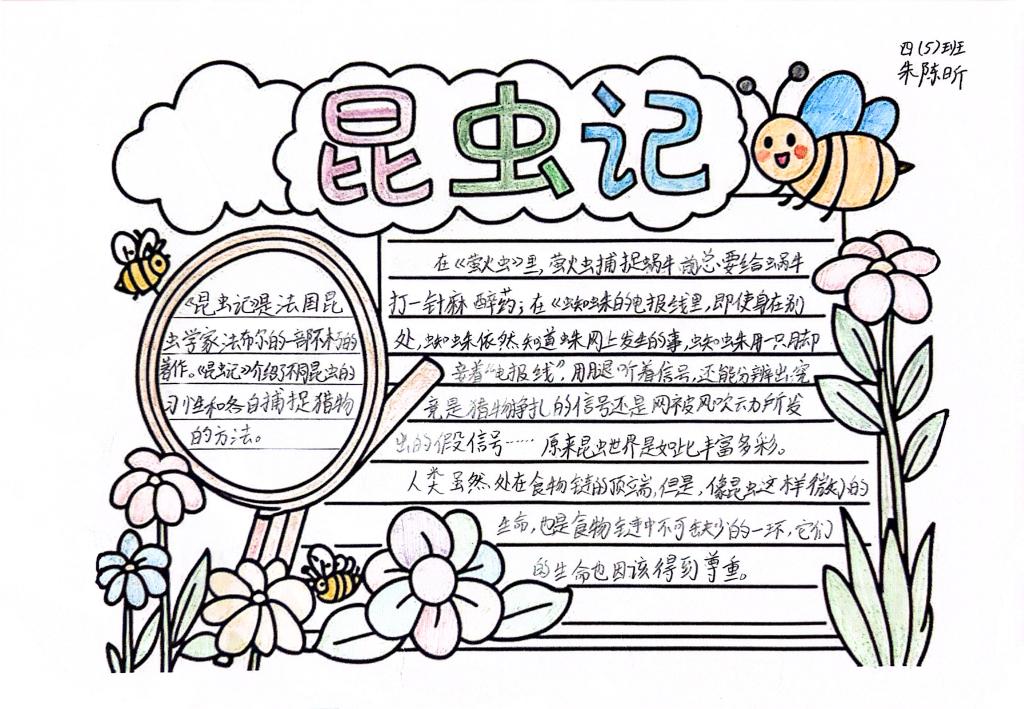 四(5)班
朱陈昕
昆虫记
《昆虫记》是法国昆
虫学家法布尔的一部不朽的
著作。《昆虫记》介绍了不同昆虫的
习性和各自捕捉猎物
的方法。
在《萤火虫》里,萤火虫捕捉蜗牛前总要给蜗牛
打一针麻醉药;在《蜘蛛的电报线里,即使身在别
处,蜘蛛依然知道蛛网上发生的事,蜘蛛用一只脚
接着“电报线”,用腿听着信号,还能分辨出究
竟是猎物挣扎的信号还是网被风吹动所发
出的假信号……原来昆虫世界是如此丰富多彩。
人类虽然处在食物链的顶端,但是,像昆虫这样微小的
生命,也是食物链中不可缺少的一环,它们
的生命也因该得到尊重。